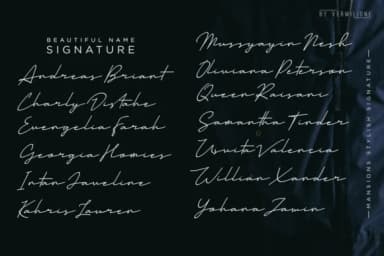 BY VERMILIONE
BEAUTIFUL NAME
SIGNATURE
Andreas Briant
Charly Distahe
Evengelia Farah
Georgia Homies
Intan Javeline
Kahris Lauren
Mussyayin Nesh
Oliviana Peterson
Queen Raisani
Samantha Tinder
Uvuita Valencia
Willian Xander
Yohana Zawin
MANSIONS STYLISH SIGNATURE